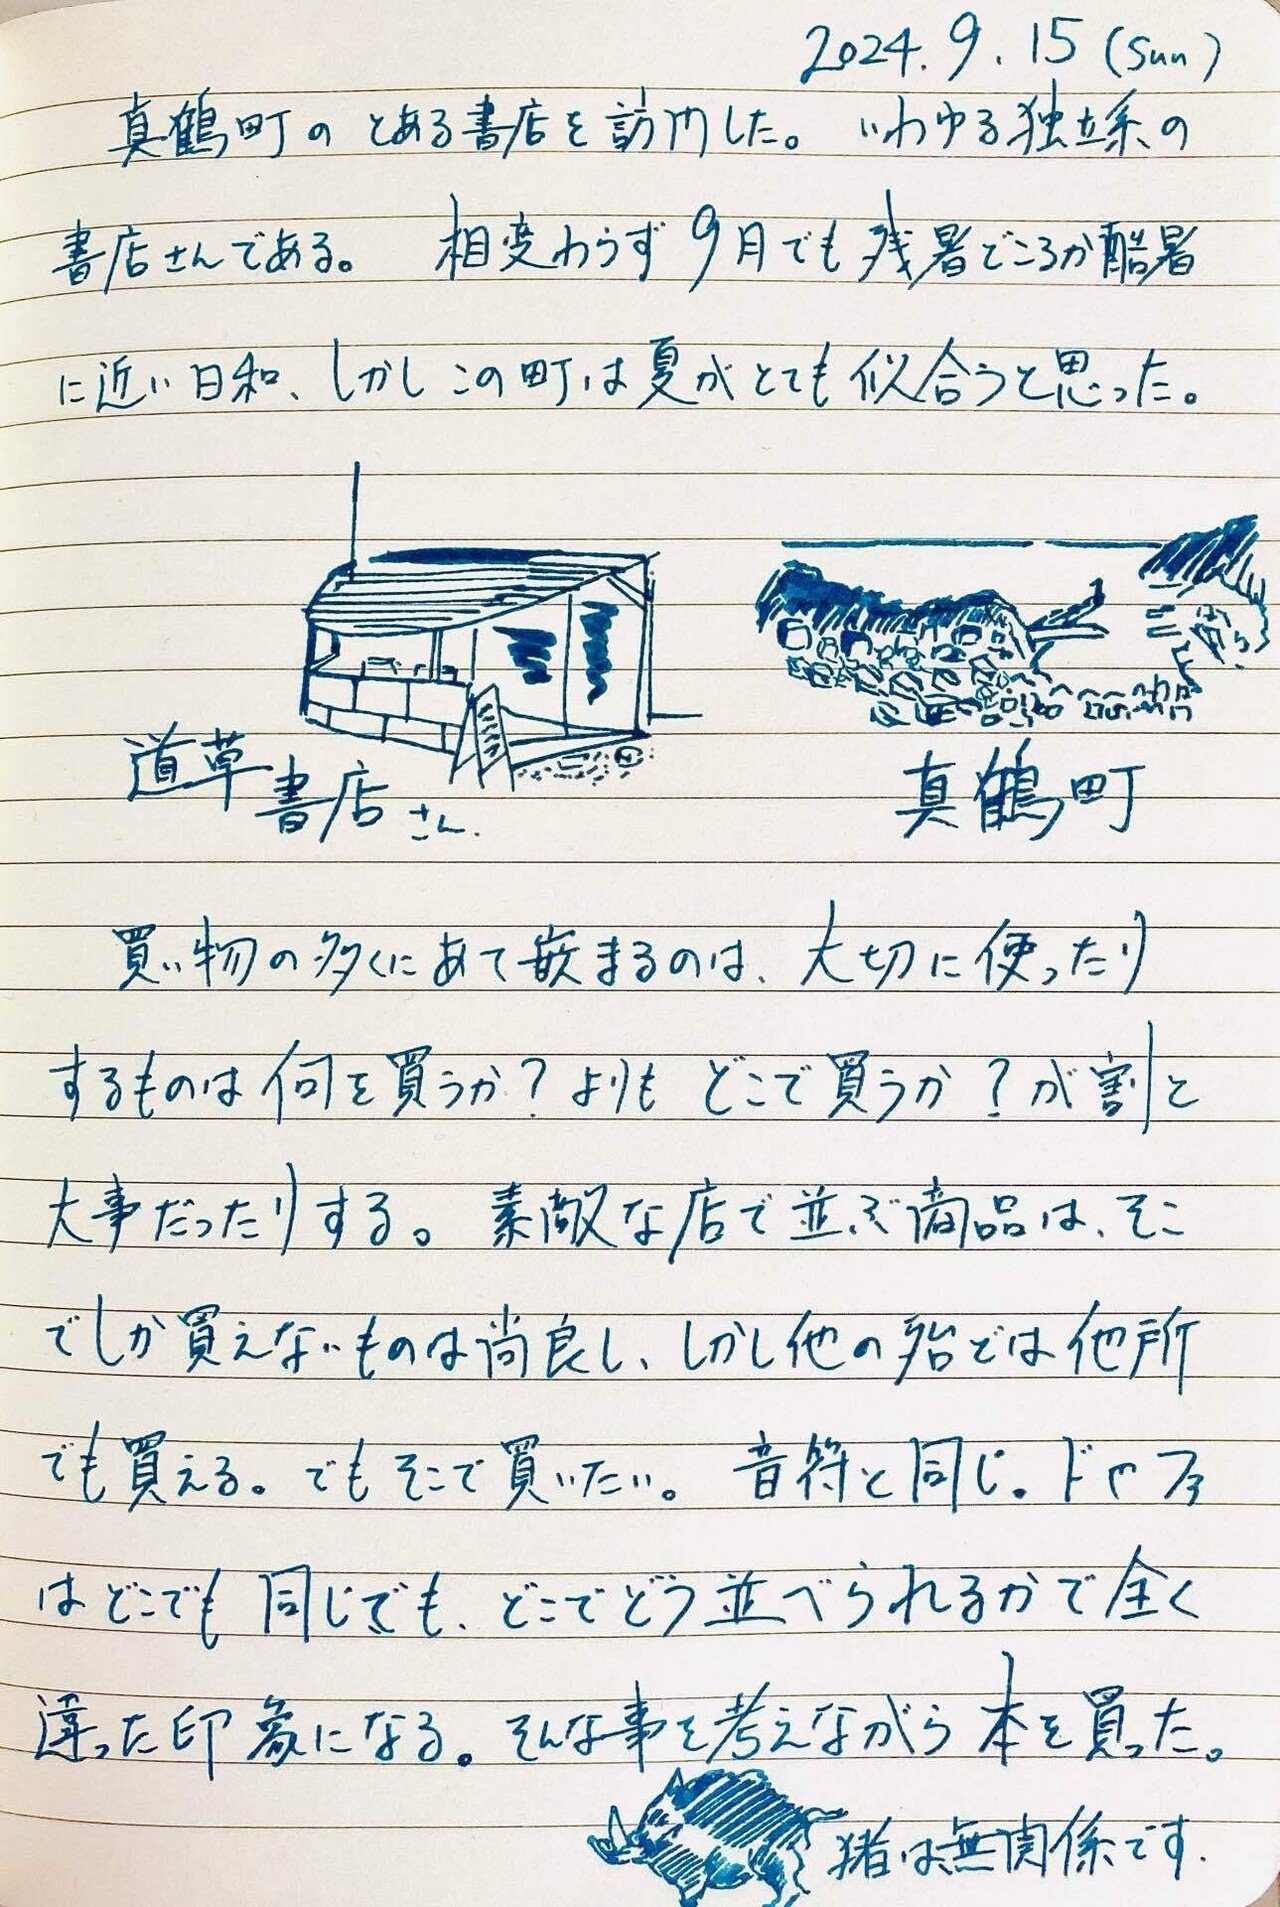 2024.9.15(Sun)
真鶴町のとある書店を訪問した。いわゆる独立系の
書店さんである。相変わらず9月でも残暑どころか酷暑
に近い日和、しかしこの町は夏がとても似合うと思った。
道草
書店さん.
真鶴町
買い物の多くにあて嵌まるのは、大切に使ったり
するものは何を買うか?よりもどこで買うか?が割と
大事だったりする。素敵な店で並ぶ商品は、そこ
でしか買えないものは尚良し、しかし他の殆どは他所
でも買える。でもそこで買いたい。音符と同じ。ドやファ
はどこでも同じでも、どこでどう並べられるかで全く
違った印象になる。そんな事を考えながら本を買った。
猪は無関係です.